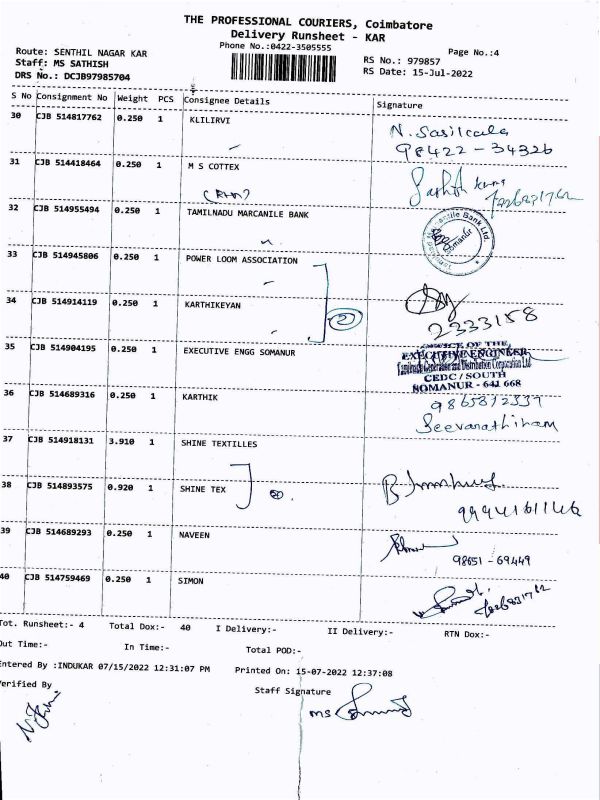 THE PROFESSIONAL COURIERS, Coimbatore
Delivery Runsheet - KAR
Phone No.:0422-3505555
Page No.:4
Route: SENTHIL NAGAR KAR
RS No.: 979857
Staff: MS SATHISH
RS Date: 15-Jul-2022
DRS No.: DCJB97985704
S No Consignment No Weight PCS Consignee Details Signature
30 CJB 514817762 0.250 1 KLILIRVI
N. Sasilcala
98422 - 34326
31 CJB 514418464 0.250 1 M S COTTEX
32 CJB 514955494 0.250 1 TAMILNADU MARCANILE BANK
33 CJB 514945806 0.250 1 POWER LOOM ASSOCIATION
34 CJB 514914119 0.250 1 KARTHIKEYAN
2
2333158
35 CJB 514904195 0.250 1 EXECUTIVE ENGG SOMANUR
OFFICE OF THE
EXECUTIVE ENGINEER
Tamilnadu Generation and Distribution Corporation Ltd
CEDC / SOUTH
SOMANUR - 641 668
36 CJB 514689316 0.250 1 KARTHIK
Jeevarathinam
37 CJB 514918131 3.910 1 SHINE TEXTILLES
38 CJB 514893575 0.920 1 SHINE TEX
39 CJB 514689293 0.250 1 NAVEEN
98651 - 69449
40 CJB 514759469 0.250 1 SIMON
Tot. Runsheet:- 4 Total Dox:- 40 I Delivery:- II Delivery:- RTN Dox:-
Out Time:- In Time:- Total POD:-
Entered By :INDUKAR 07/15/2022 12:31:07 PM Printed On: 15-07-2022 12:37:08
Verified By Staff Signature
MS